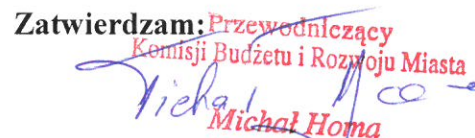 Zatwierdzam: Przewodniczący
Komisji Budżetu i Rozwoju Miasta
Michał
Michał Homa